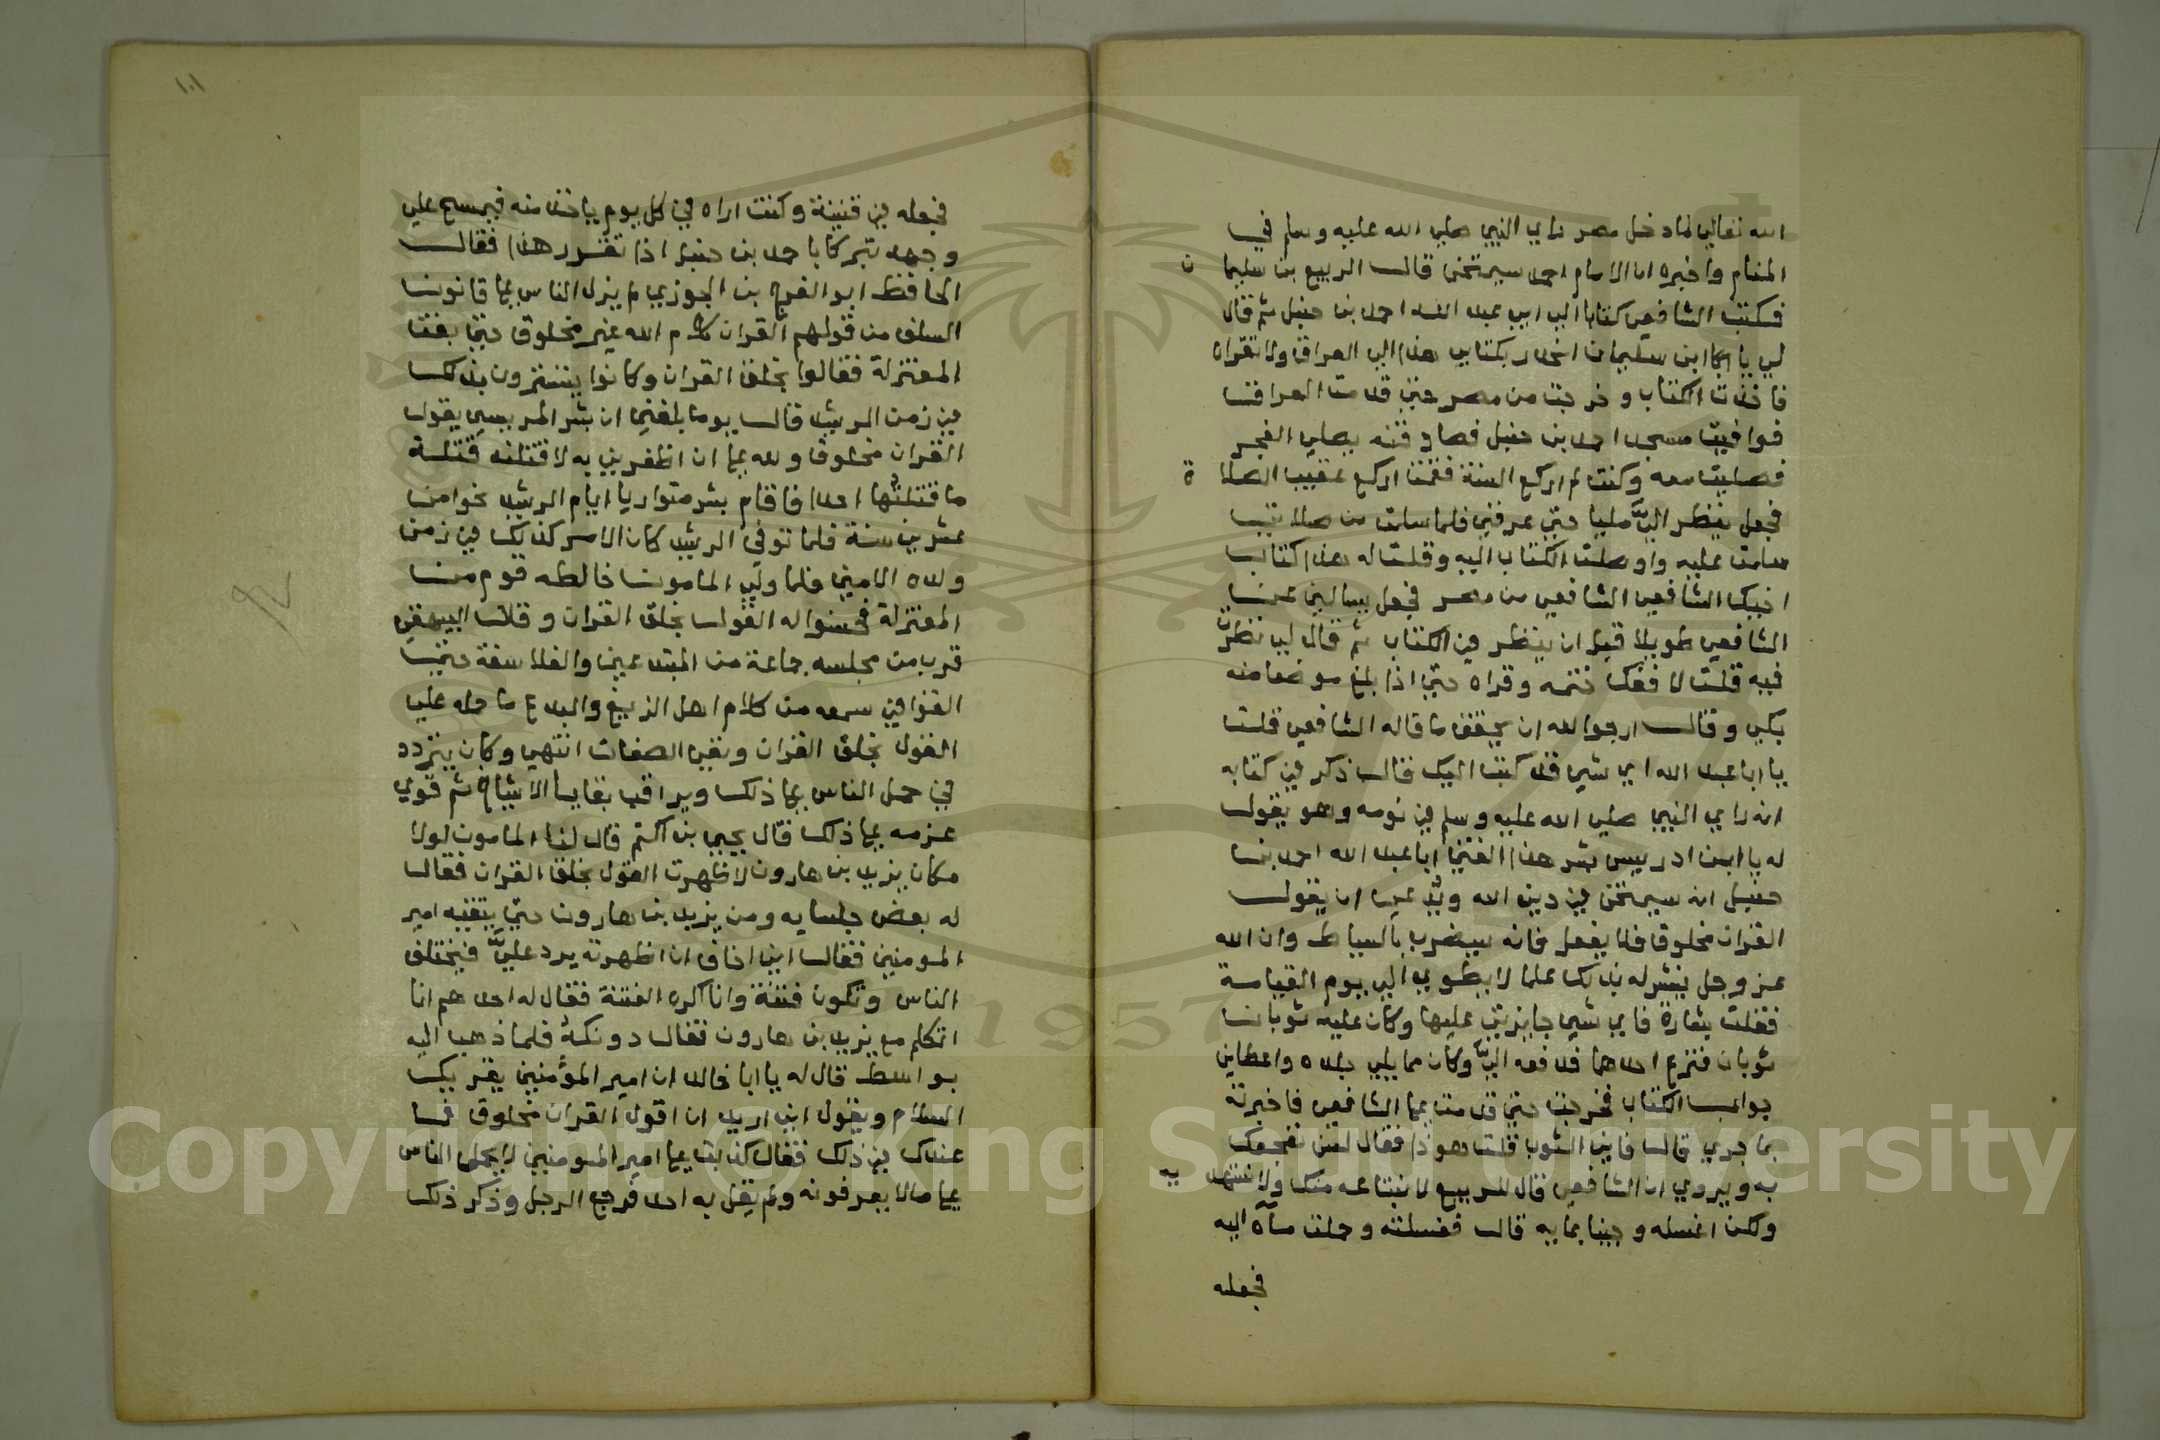 الله تعالي لما دخل مصر راي النبي صلي الله عليه وسلم في
المنام واخبره ان الامام احمد سيمتحن قالـــ الربيع بن سليما ن
فكتب الشافعي كتابا الي ابي عبد الله احمد بن حنبل ثم قال
لي يا ابن سليمان انحدر بكتابي هذا الي العراق ولا تقراه
فاخذت الكتاب وخرجت من مصر حتي قدمت العراق
فوافيت مسجد احمد بن حنبل فصادفته يصلي الفجر
فصليت معه وكنت لم اركع السنة فقمت اركع عقيب الصلا ة
فجعل ينظر اليَّ مليا حتي عرفني فلما سلمت من صلاتي
سلمت عليه واوصلت الكتاب اليه وقلت له هذا كتاب
اخيك الشافعي الشافعي من مصر فجعل يسالني عن
الشافعي طويلا قبل ان ينظر في الكتاب ثم قال لي نظرت
فيه قلت لا ففك ختمه وقراه حتي اذا بلغ موضعا منه
بكي وقالـــ ارجوا لله ان يحقق ما قاله الشافعي قلت
يا ابا عبد الله اي شي قد كتب اليك قال ذكر في كتابه
انه راي النبي صلي الله عليه وسلم في نومه وهو يقول
له يا ابن ادريس بشر هذا الفتي ابا عبد الله احمد بن
حنبل انه سيمتحن في دين الله ويدعي ان يقولـــ
القران مخلوق فلا يفعل فانه سيضرب بالسياط وان الله
عز وجل ينشر له بذلك علما لا يطوي الي يوم القيامة
فقلت بشارة فاي شي جايزتي عليها وكان عليه ثوبان
ثوبان فنزع احدهما فدفعه اليَّ وكان مما يلي جلده واعطاني
جواب الكتاب فخرجت حتي قدمت علي الشافعي فاخبرته
بما جري قال فاين الثوب قلت هوذا فقال لئن نفجعك
به ويروي ان الشافعي قال للربيع لا نبتاعه منك ولا نستهد يه
ولكن اغسله وجينا بمايه قالـــ فغسلته وحملت مآه اليه
فجعله
١٠١
فجعله في قنينة وكنت اراه في كل يوم ياخذ منه فيمسح علي
وجهه تبركا باحمد بن حنبل اذا تقرر هذا فقالـــ
الحافظ ابو الفرج بن الجوزي لم يزل الناس علي قانون
السلف من قولهم القران كلام الله غير مخلوق حتي بغت
المعتزلة فقالوا بخلق القران وكانوا يتسترون بذلك
في زمن الرشيد قالـــ يوما بلغني ان بشر المريسي يقول
القران مخلوق ولله علي ان اظفرني به لاقتلنه قتلة
ما قتلتها احدا فاقام بشر متواريا ايام الرشيد نحوا من
عشرين سنة فلما توفي الرشيد كان الامر كذلك في زمن
ولده الامين فلما ولي المامون خالطه قوم من
المعتزلة فحسنوا له القول بخلق القران وقال البيهقي
قرب من مجلسه جماعة من المبتدعين والفلاسفة حتي
القوا في سمعه من كلام اهل الزيغ والبدع ما حمله علي
القول بخلق القران ونفي الصفات انتهي وكان يتردد
في حمل الناس علي ذلك ويراقب بقايا الاشياخ ثم قوي
عزمه علي ذلك قال يحيي بن اكثم قال لنا المامون لولا
مكان يزيد بن هارون لاظهرت القول بخلق القران فقال
له بعض جلسايه ومن يزيد بن هارون حتي يتقيه امير
المومنين فقال اني اخاف ان اظهرته يرد عليَّ فيختلف
الناس وتكون فتنة وانا اكره الفتنة فقال له احدهم انا
اتكلم مع يزيد بن هارون فقال دونكه فلما ذهب اليه
بواسط قال له يا ابا خالد ان امير المؤمنين يقريك
السلام ويقول اني اريد ان اقول القران مخلوق فما
عندك في ذلك فقال كذبت علي امير المومنين لا يحمل الناس
علي ما لا يعرفونه ولم يقل به احد فرجع الرجل وذكر ذلك
Copyright © King Saud University
1957